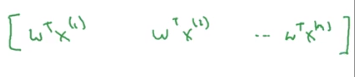 [ w^T x^(1)   w^T x^(2)   ...   w^T x^(n) ]